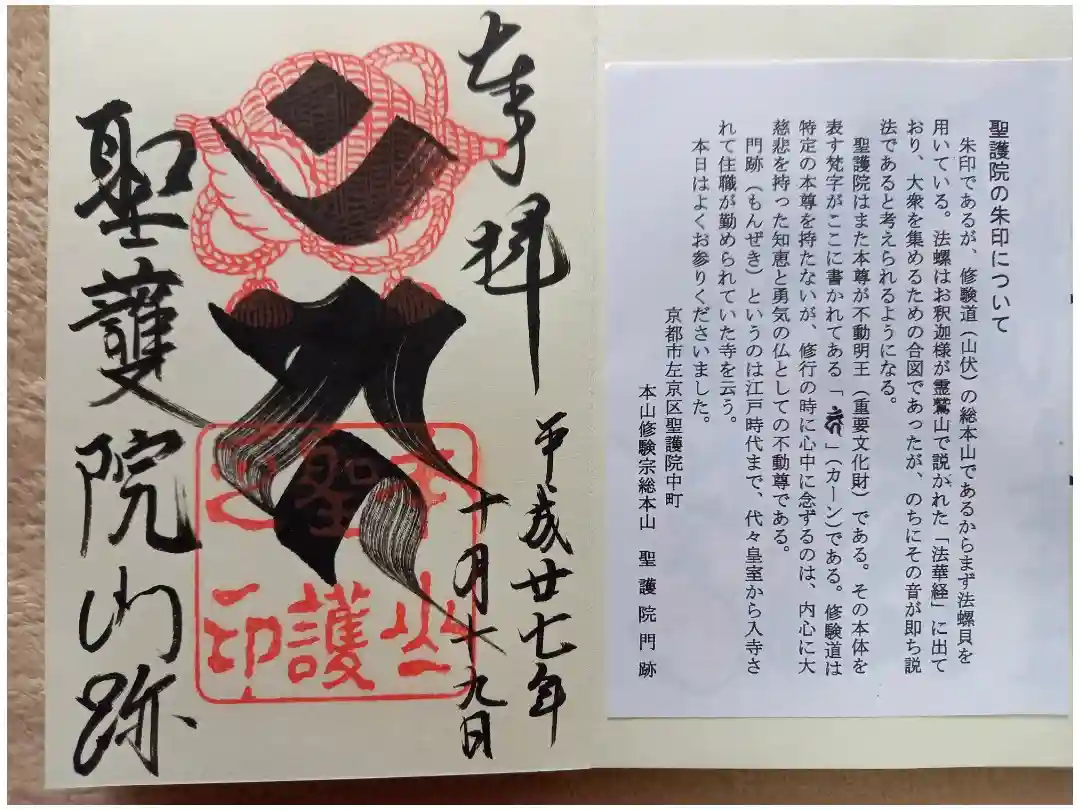 聖護院の朱印について
朱印であるが、修験道（山伏）の総本山であるからまず法螺貝を
用いている。法螺はお釈迦様が霊鷲山で説かれた「法華経」に出て
おり、大衆を集めるための合図であったが、のちにその音が即ち説
法であると考えられるようになる。
聖護院はまた本尊が不動明王（重要文化財）である。その本体を
表す梵字がここに書かれてある「」（カーン）である。修験道は
特定の本尊を持たないが、修行の時に心中に念ずるのは、内心に大
慈悲を持った知恵と勇気の仏としての不動尊である。
門跡（もんぜき）というのは江戸時代まで、代々皇室から入寺さ
れて住職が勤められていた寺を云う。
本日はよくお参りくださいました。
京都市左京区聖護院中町
本山修験宗総本山 聖護院門跡
奉拝
平成廿七年
十月十九日
聖護院門跡